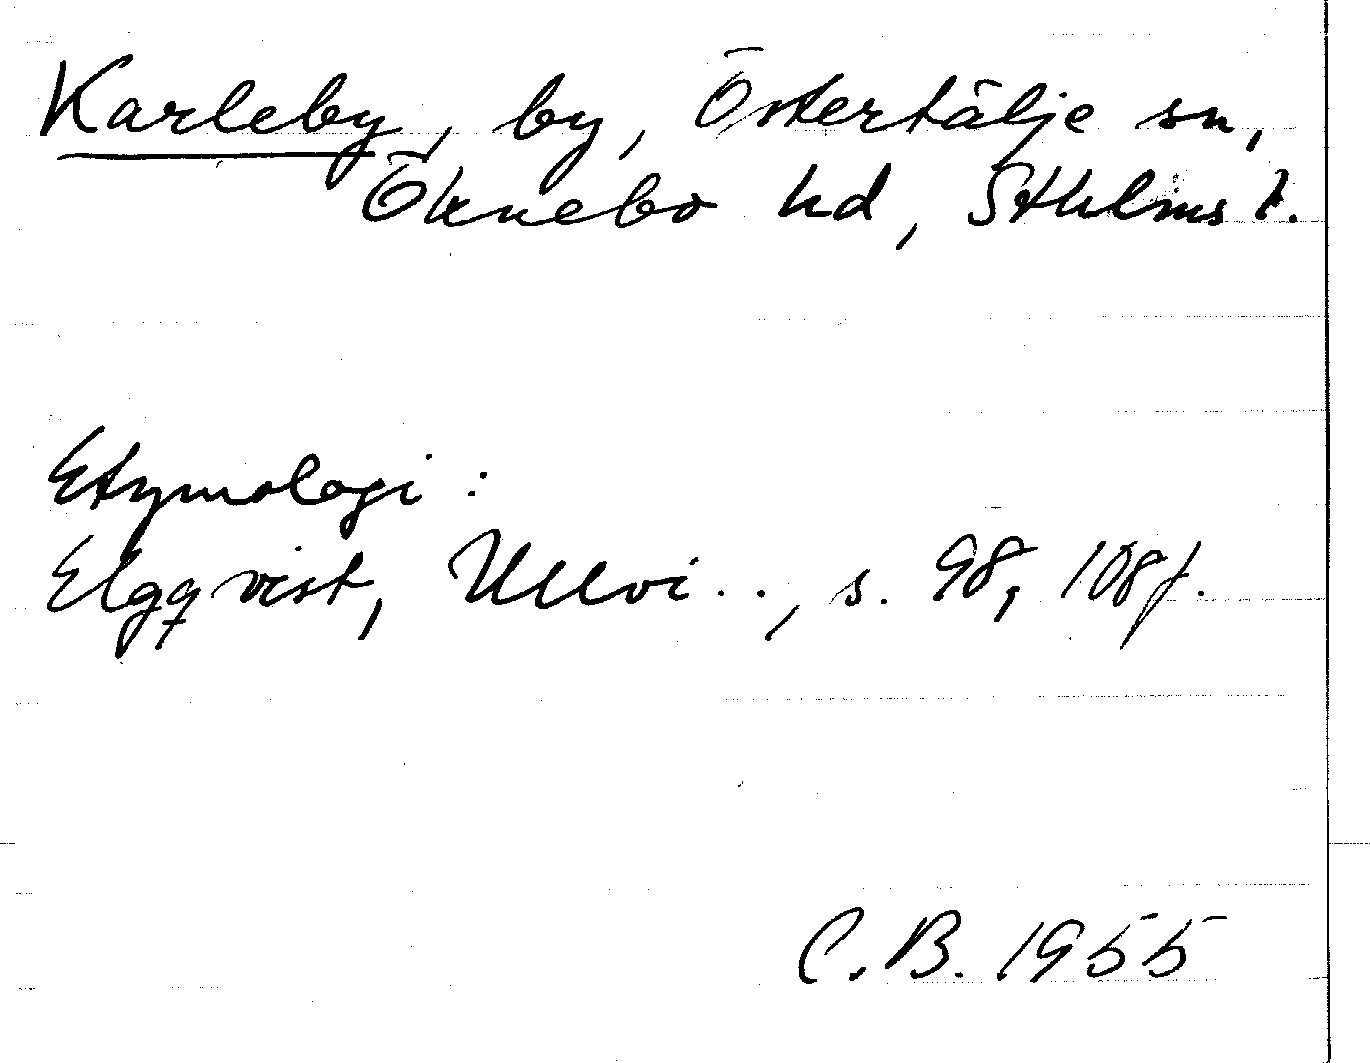 Karleby, by, Östertälje sn,
Öknebo hd, Sthlms l.
Etymologi :
Elgqvist, Ullvi . . , s. 98, 108f.
C.B. 1955